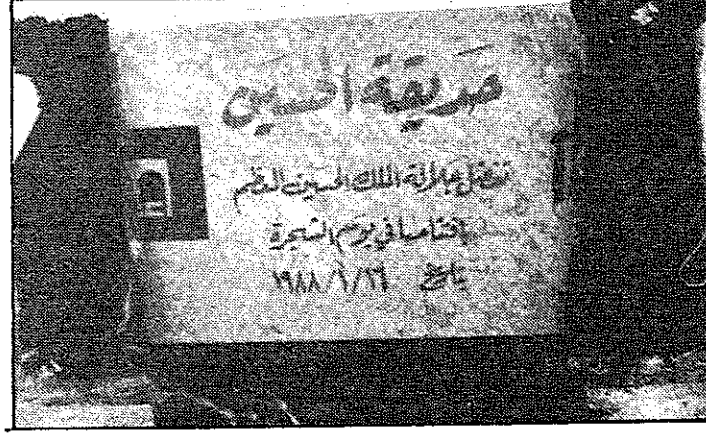 حديقة الحسين
تفضل جلالة الملك الحسين المعظم
بافتتاحها في يوم الشجرة
بتاريخ ١٩٨٨/١/٢٦